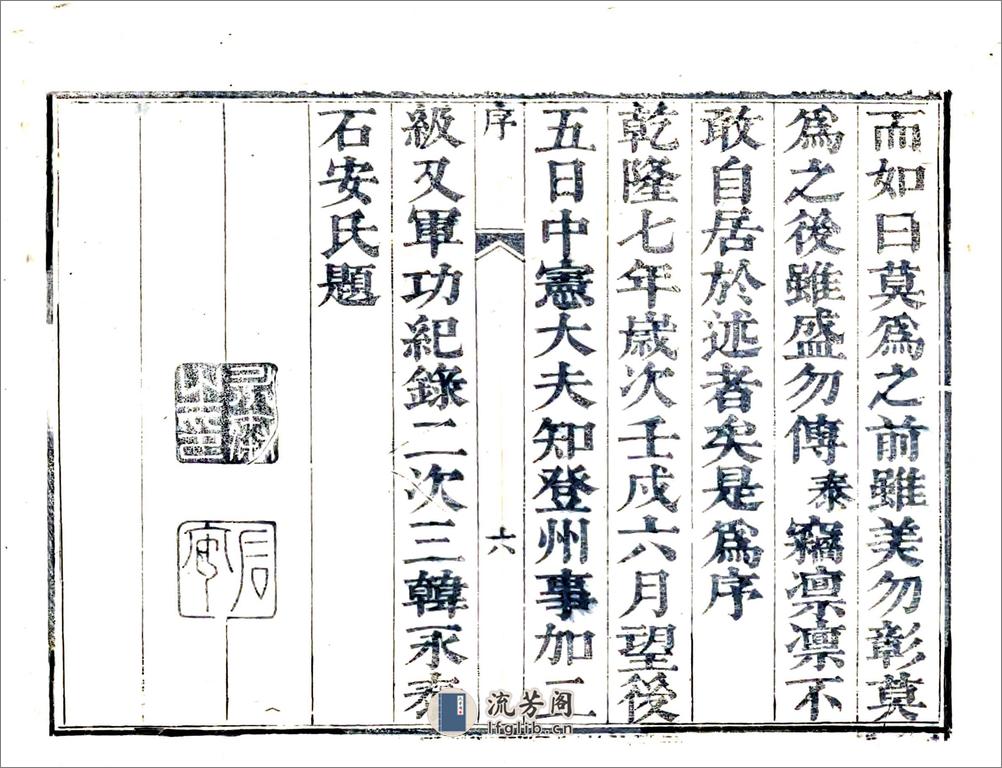 而如曰莫爲之前雖美勿彰莫
爲之後雖盛勿傳泰竊凛凛不
敢自居於述者矣是爲序
乾隆七年歲次壬戌六月望後
五日中憲大夫知登州事加二
序
六
級又軍功紀錄二次三韓永泰
石安氏題
石安
流芳阁
lfglib.cn